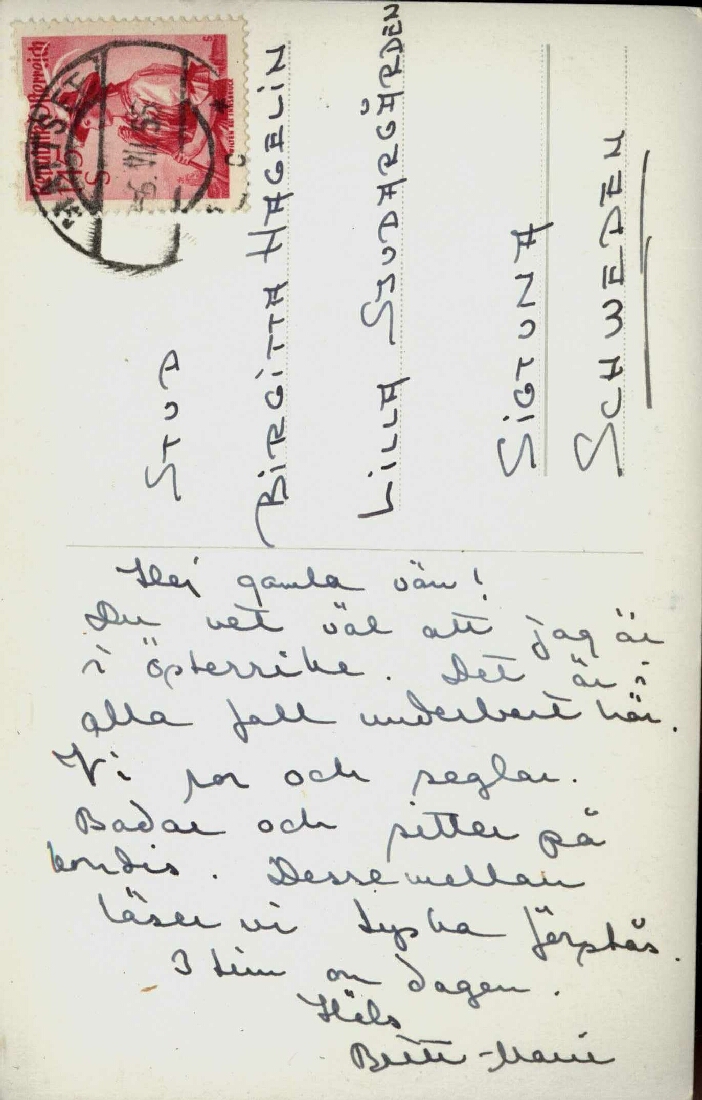 STUD
BIRGITTA HAGELIN
LILLA SJUDARGÅRDEN
SIGTUNA
SCHWEDEN
Hej gamla vän!
Du vet väl att jag är
i Österrike. Det är i
alla fall underbart här.
Vi ror och seglar.
Badar och sitter på
kondis. Dessemellan
läser vi tyska förstås.
3 tim om dagen.
Häls
Britt-Marie
Republik Österreich
S
MATTSEE